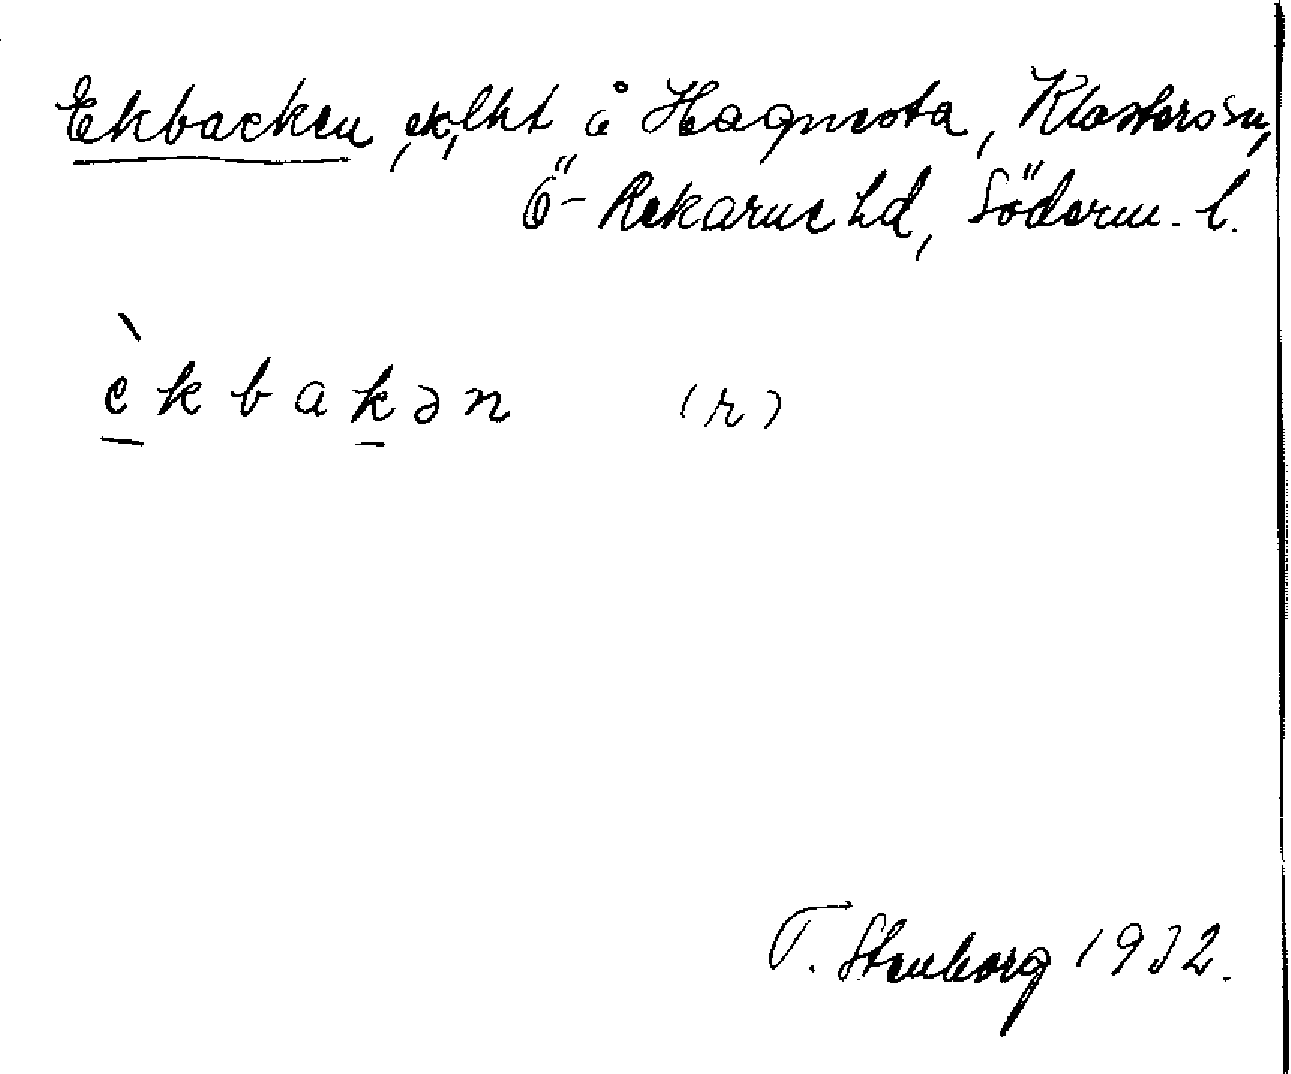 Ekbacken, ek, lht å Hagnesta, Klosters sn,
Ö-Rekarne hd, Söderm. l.
èkbakən (r)
T. Stenborg 1932.